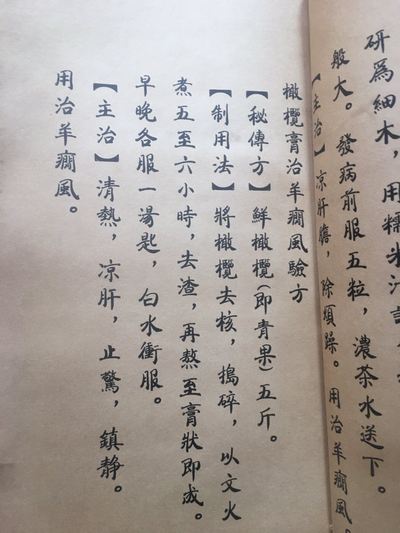 研爲細木，用糯米汁
般大。發病前服五粒，濃茶水送下。
【主治】凉肝膽，除煩躁。用治羊癇風。
橄欖膏治羊癇風驗方
【秘傳方】鮮橄欖（即青果）五斤。
【制用法】將橄欖去核，搗碎，以文火
煮五至六小時，去渣，再熬至膏狀即成。
早晚各服一湯匙，白水衝服。
【主治】清熱，凉肝，止驚，鎮靜。
用治羊癇風。